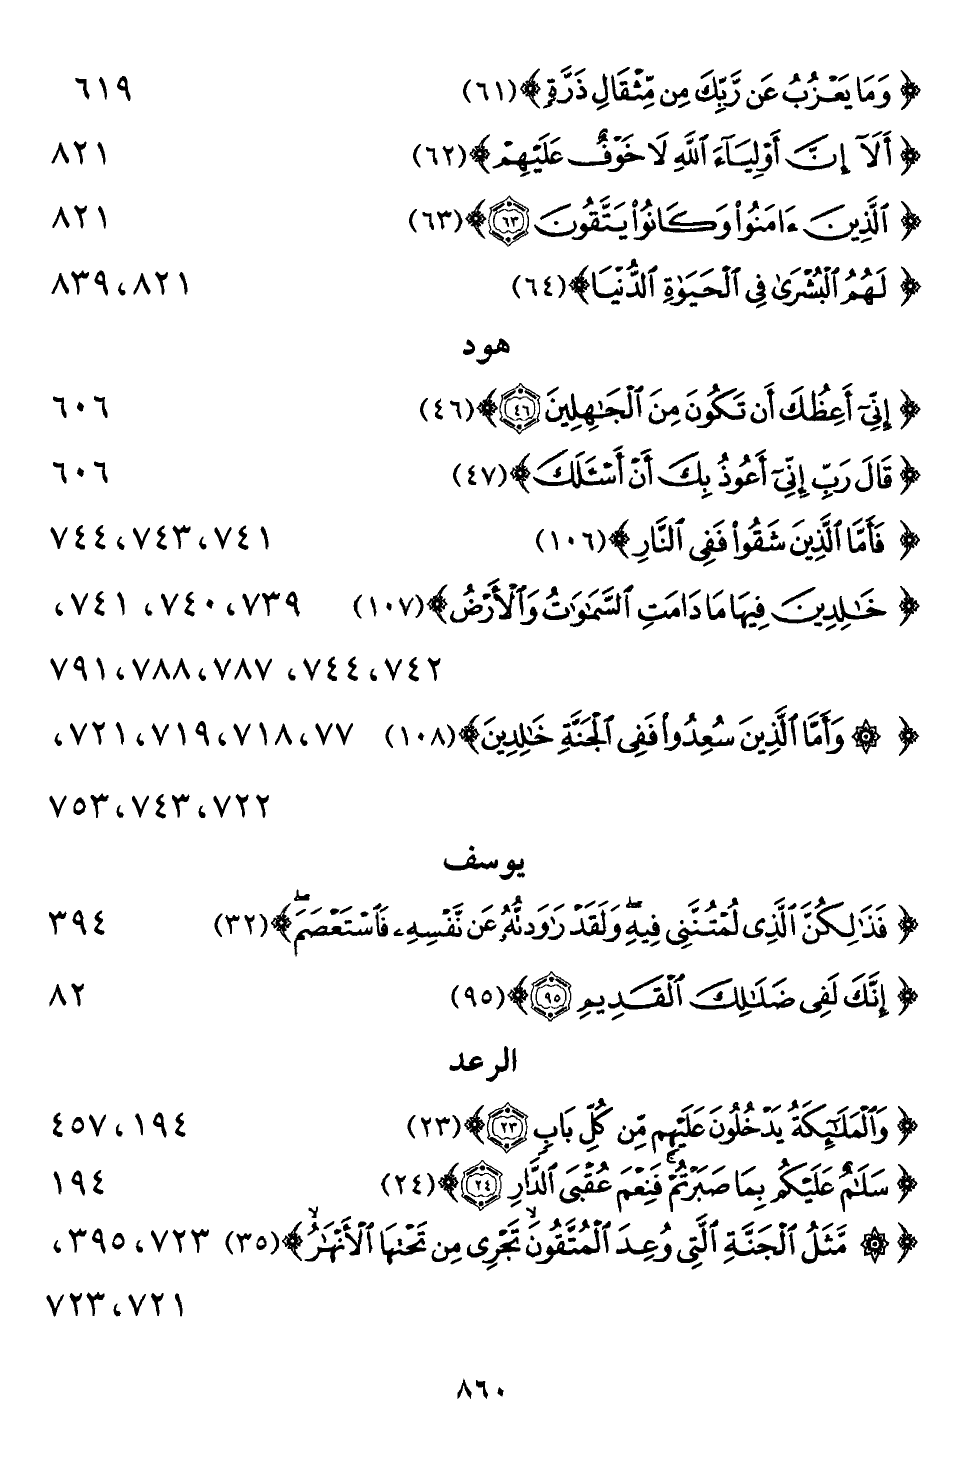 ﴿ وَمَا يَعْزُبُ عَن رَّبِّكَ مِن مِّثْقَالِ ذَرَّةٍ ﴾ (٦١) ٦١٩
﴿ أَلَآ إِنَّ أَوْلِيَآءَ ٱللَّهِ لَا خَوْفٌ عَلَيْهِمْ ﴾ (٦٢) ٨٢١
﴿ ٱلَّذِينَ ءَامَنُوا۟ وَكَانُوا۟ يَتَّقُونَ ٦٣ ﴾ (٦٣) ٨٢١
﴿ لَهُمُ ٱلْبُشْرَىٰ فِى ٱلْحَيَوٰةِ ٱلدُّنْيَا ﴾ (٦٤) ٨٢١، ٨٣٩
هود
﴿ إِنِّىٓ أَعِظُكَ أَن تَكُونَ مِنَ ٱلْجَـٰهِلِينَ ٤٦ ﴾ (٤٦) ٦٠٦
﴿ قَالَ رَبِّ إِنِّىٓ أَعُوذُ بِكَ أَنْ أَسْـَٔلَكَ ﴾ (٤٧) ٦٠٦
﴿ فَأَمَّا ٱلَّذِينَ شَقُوا۟ فَفِى ٱلنَّارِ ﴾ (١٠٦) ٧٤١، ٧٤٣، ٧٤٤
﴿ خَـٰلِدِينَ فِيهَا مَا دَامَتِ ٱلسَّمَـٰوَٰتُ وَٱلْأَرْضُ ﴾ (١٠٧) ٧٣٩، ٧٤٠، ٧٤١،
٧٤٢، ٧٤٤، ٧٨٧، ٧٨٨، ٧٩١
﴿ ۞ وَأَمَّا ٱلَّذِينَ سُعِدُوا۟ فَفِى ٱلْجَنَّةِ خَـٰلِدِينَ ﴾ (١٠٨) ٧٧، ٧١٨، ٧١٩، ٧٢١،
٧٢٢، ٧٤٣، ٧٥٣
يوسف
﴿ فَذَٰلِكُنَّ ٱلَّذِى لُمْتُنَّنِى فِيهِ ۖ وَلَقَدْ رَٰوَدتُّهُۥ عَن نَّفْسِهِۦ فَٱسْتَعْصَمَ ۖ ﴾ (٣٢) ٣٩٤
﴿ إِنَّكَ لَفِى ضَلَـٰلِكَ ٱلْقَدِيمِ ٩٥ ﴾ (٩٥) ٨٢
الرعد
﴿ وَٱلْمَلَـٰٓئِكَةُ يَدْخُلُونَ عَلَيْهِم مِّن كُلِّ بَابٍ ٢٣ ﴾ (٢٣) ١٩٤، ٤٥٧
﴿ سَلَـٰمٌ عَلَيْكُم بِمَا صَبَرْتُمْ ۚ فَنِعْمَ عُقْبَى ٱلدَّارِ ٢٤ ﴾ (٢٤) ١٩٤
﴿ ۞ مَّثَلُ ٱلْجَنَّةِ ٱلَّتِى وُعِدَ ٱلْمُتَّقُونَ ۖ تَجْرِى مِن تَحْتِهَا ٱلْأَنْهَـٰرُ ۖ ﴾ (٣٥) ٧٢٣، ٣٩٥،
٧٢١، ٧٢٣
٨٦٠